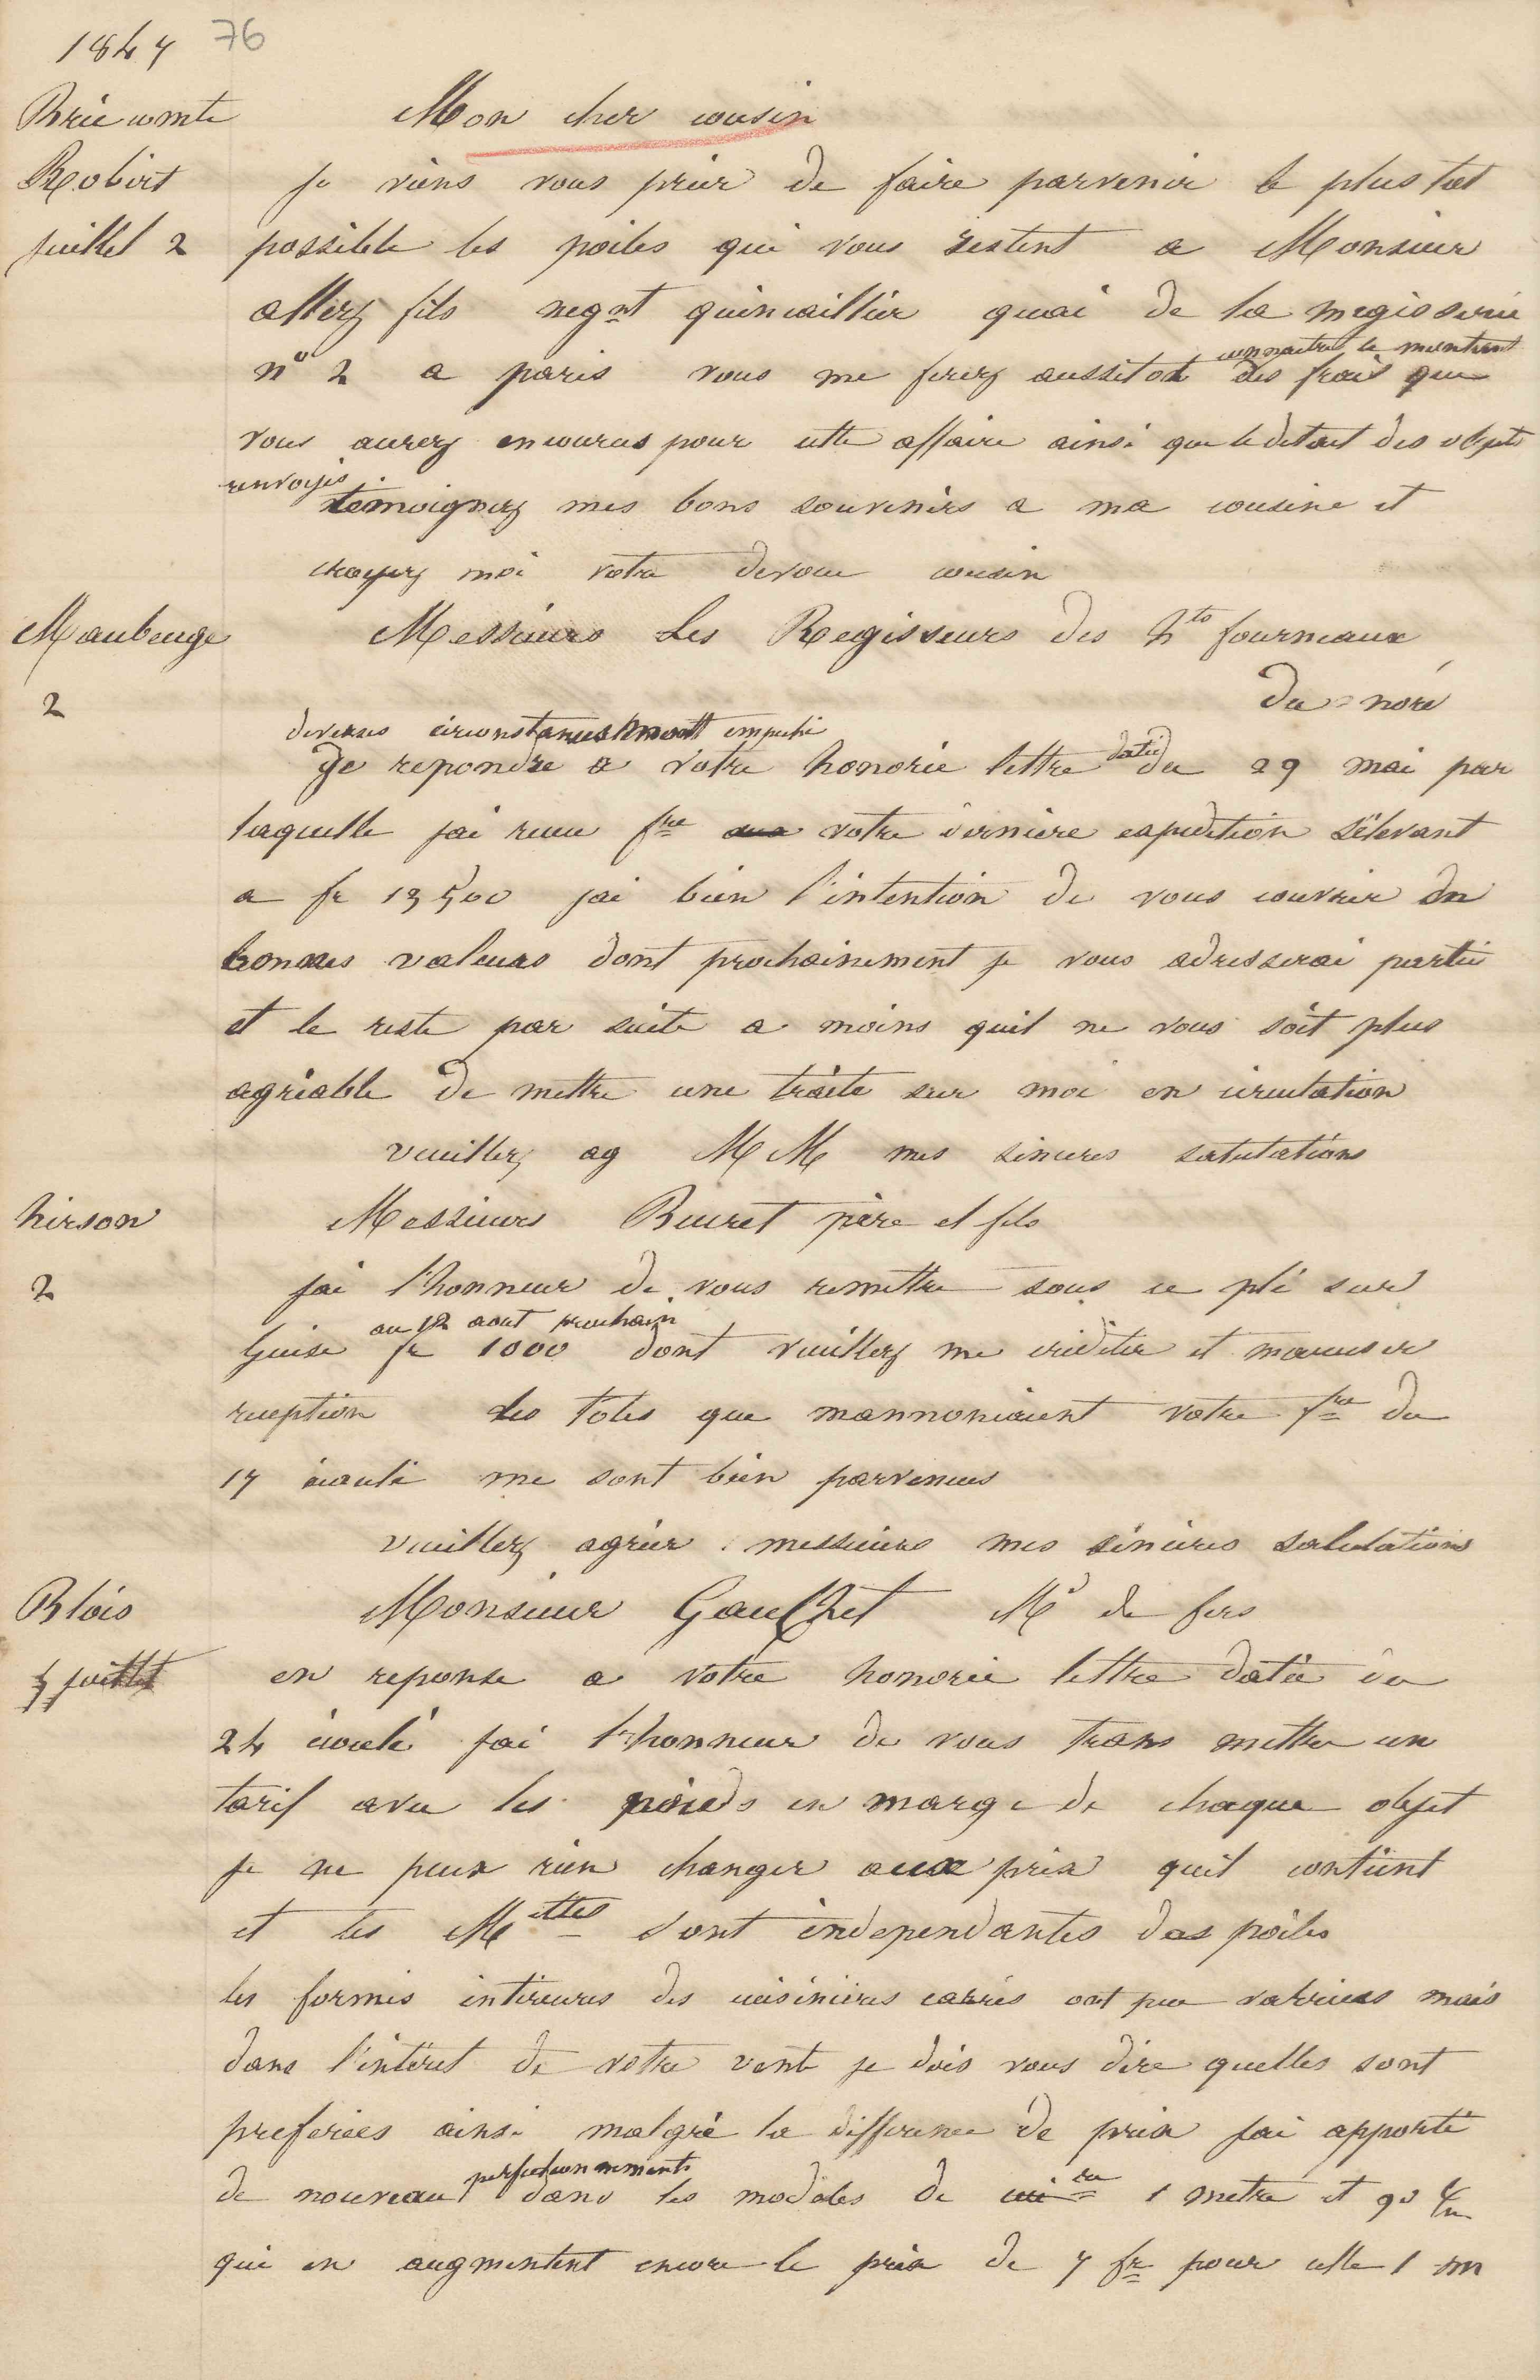 1847 76
Brie comte Mon cher cousin
Robert je viens vous prier de faire parvenir le plus tot
juillet 2 possible les poiles qui vous restent a Monsieur
allez fils negnt quincaillier quai de la megisserie
connaitre le montant
n° 2 a paris vous me ferez aussitot des frais que
vous aurez encourus pour cette affaire ainsi que le detail des objets
renvoyés.
temoignez mes bons souvenirs a ma cousine et
croyez moi votre devoue cousin
Maubeuge Messieurs Les Regisseurs des hts fourneaux
2 du nord
diverses circonstances m'ont empeché
de repondre a votre honorée lettre datée du 29 mai par
laquelle jai recu fre votre derniere expedition s'élevant
a fr 13500 jai bien l'intention de vous couvrir en
bonnes valeurs dont prochainement je vous adresserai partie
et le reste par suite a moins quil ne vous soit plus
agréable de mettre une traite sur moi en circulation
veuillez ag M M mes sinceres salutations
hirson Messieurs Buiret père et fils
2 jai l'honneur de vous remettre sous ce pli sur
au 12 aout prochain
Guise fr 1000 dont veuillez me créditer et maccuser
reception les toles que mannoncaient votre fre du
17 écoulé me sont bien parvenues
veuillez agréer messieurs mes sincères salutations
Blois Monsieur Gauchet Md de fers
5 juillet en reponse a votre honorée lettre datée du
24 écoulé jai l'honneur de vous trans mettre un
tarif avec les poieds en marge de chaque objet
je ne peux rien changer aux prix quil contient
et les Mettes sont independantes des poiles
les formes intérieures des cuisinières carrés ont peu variées mais
dans l'intéret de votre vente je dois vous dire quelles sont
preferées ainsi malgré la difference de prix jai apporté
perfectionnements
de nouveau dans les modeles de cuire 1 metre et 90 c/m
qui en augmentent encore le prix de 7 fr pour celle 1 m